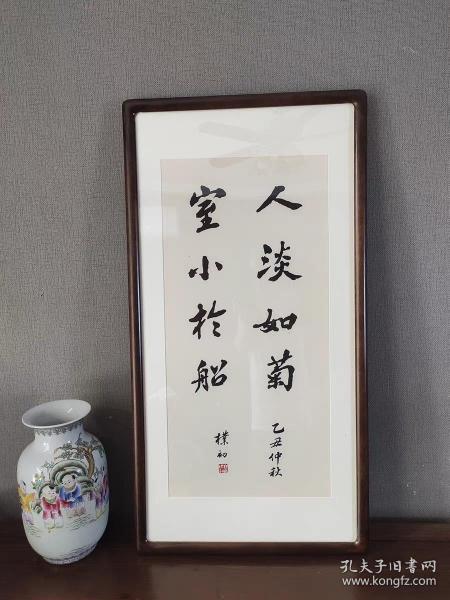 人淡如菊
室小於船
乙丑仲秋
樸初
孔夫子旧书网
www.kongfz.com